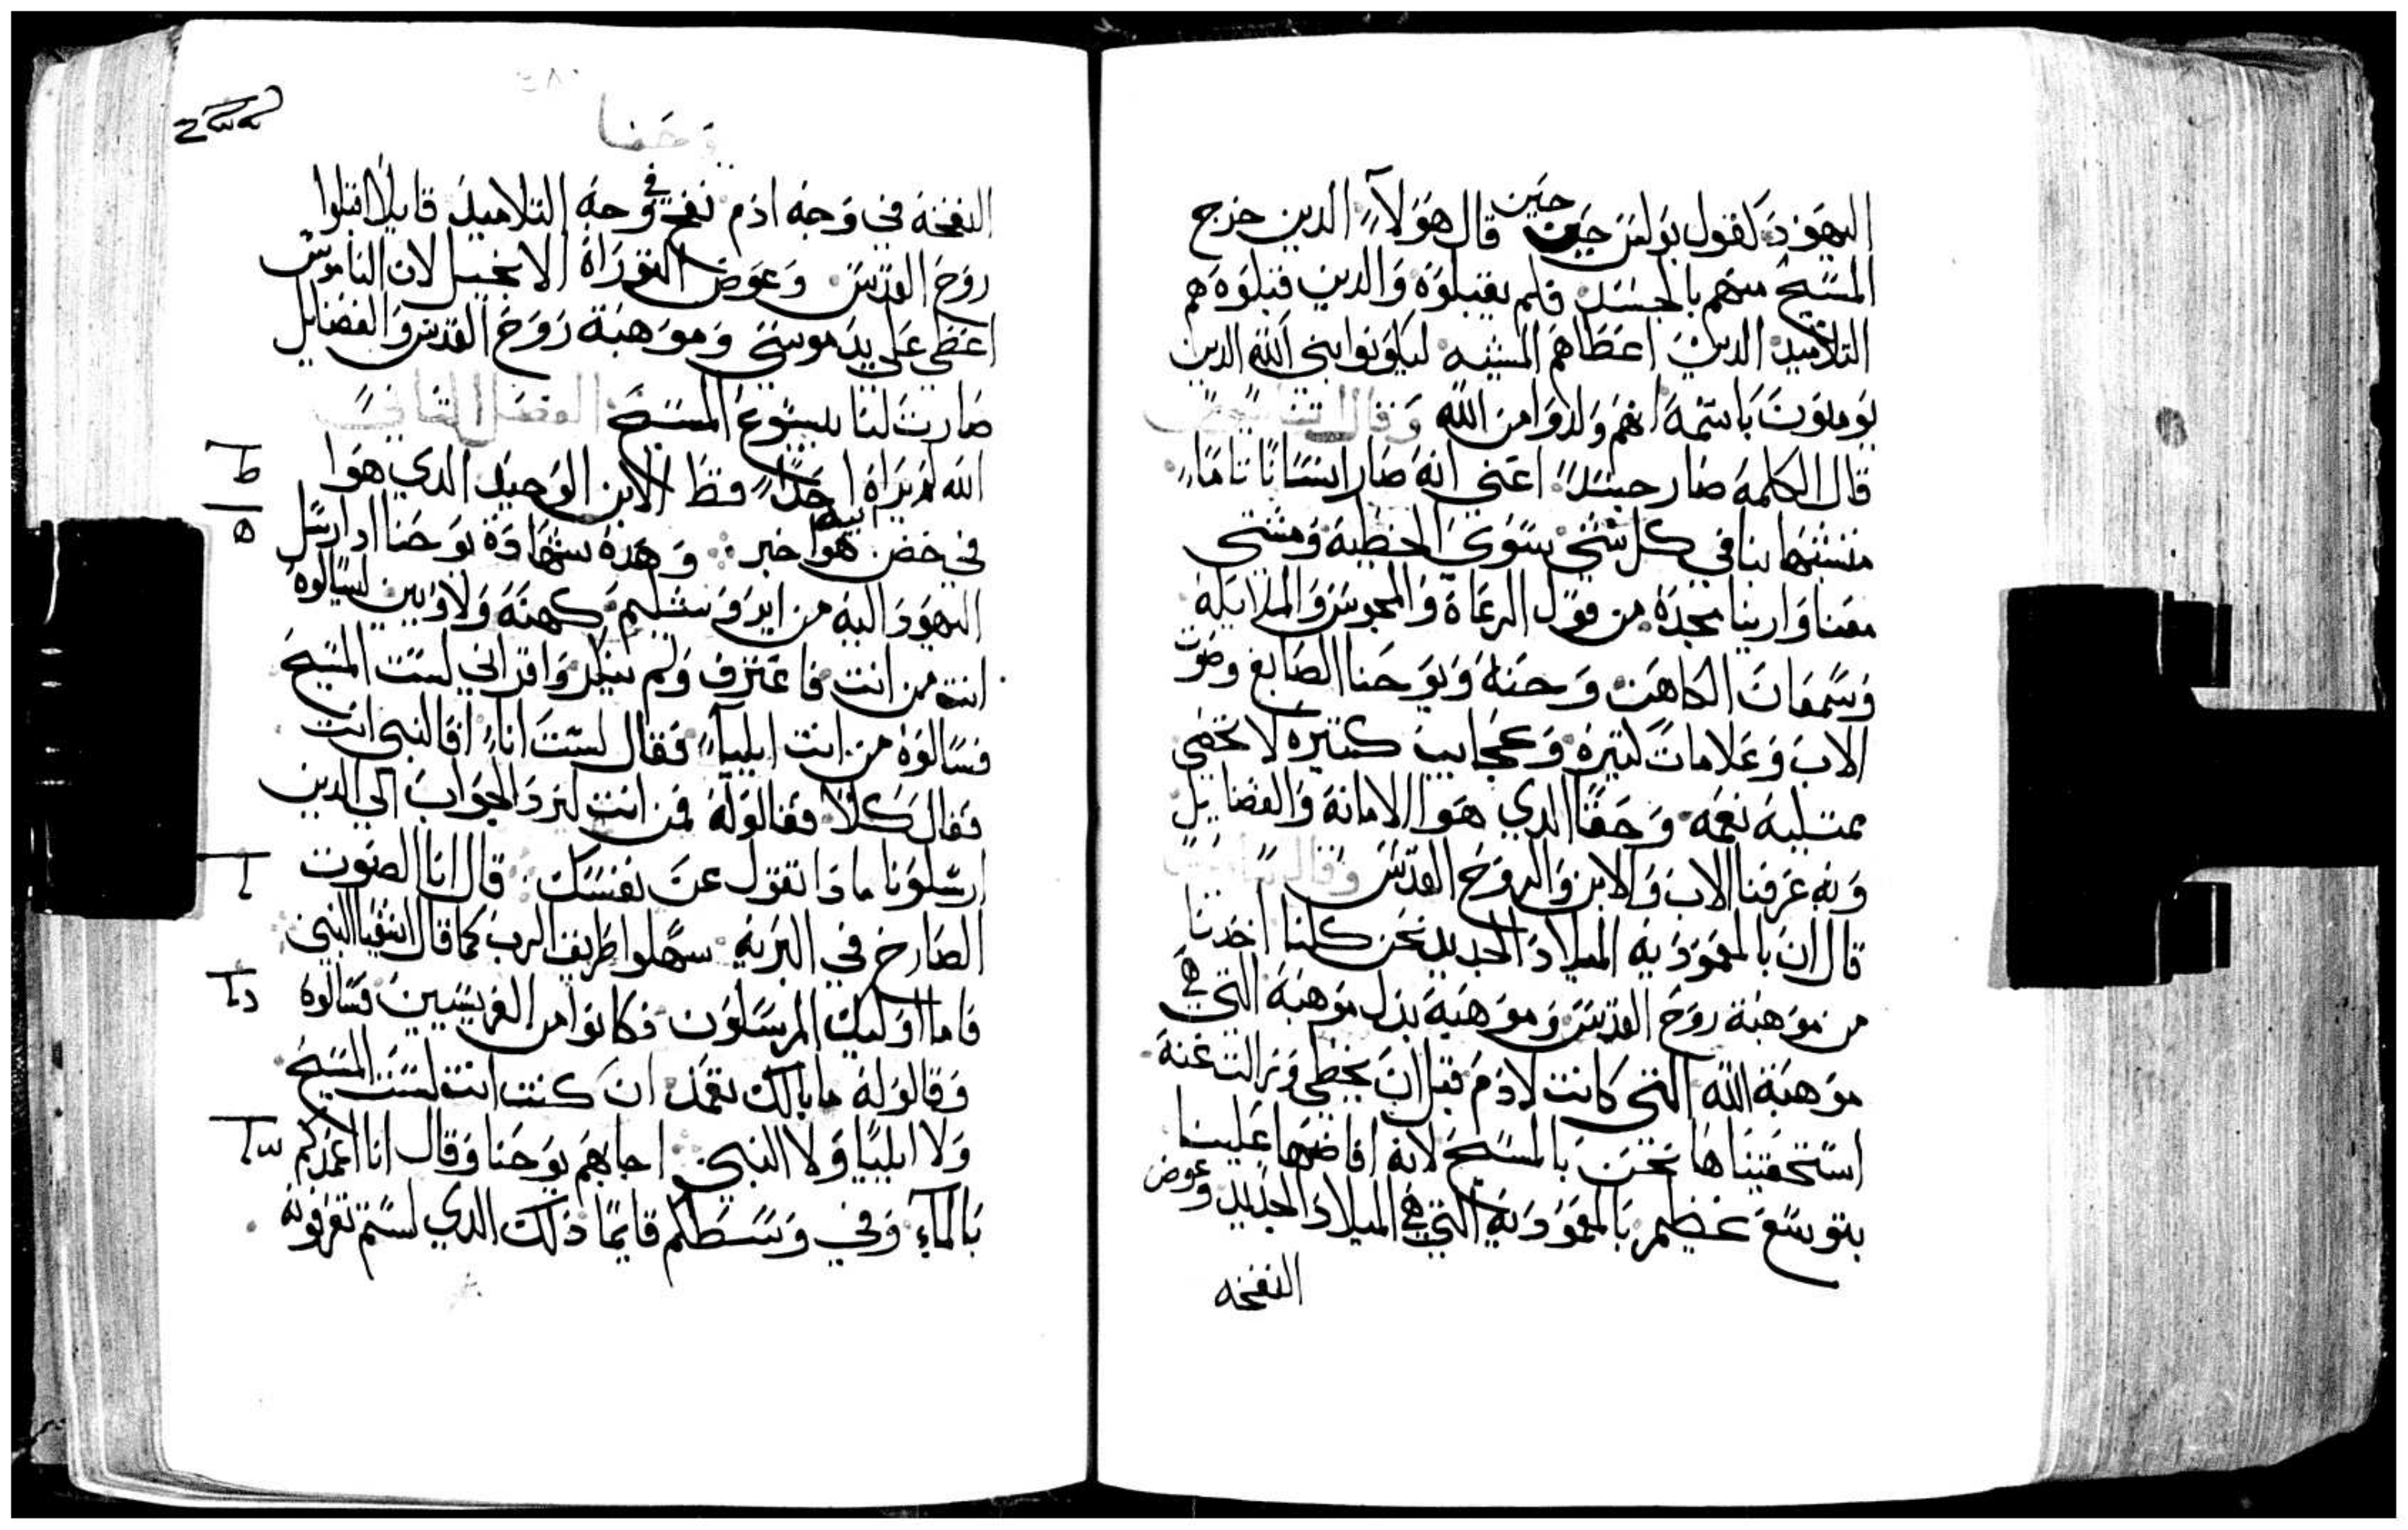 اليهود كقول بولس حين حين قال هولآء الدين خرج
المسيح منهم بالجسد فلم يقبلوه والدين قبلوه هم
التلاميد الدين اعطاهم المشيه ليكونوا بني الله الدين
يومنون باسمه انهم ولدوا من الله وقال
قال الكلمه صار جسداً اعني انه صار انساناً تاماً
متشبها بنا في كل شي سوى الخطية ومشى
معنا وارينا مجده من قول الرعاة والمجوس والملايكه
وسمعان الكاهن وحنه ويوحنا الصابغ وصوت
الاب وعلامات كتيره وعجايب كتيره لا تحصى
ممتليه نعمه وحقاً الدي هوا الامانة والفضايل
وبه عرفنا الاب والابن والروح القدس وقال
قال ان بالمعموديه الميلاد الجديد نحن كلنا اخدنا
من موهبة روح القدس وموهبة بدل موهبة التي هي
موهبة الله التي كانت لادم قبل ان يخطي وزالت عنه
استحقيناها نحن بالمسيح لانه افاضها علينا
بتوسع عظيم بالمعموديه التي هي الميلاد الجديد وعوض
النفخه
وحنا
النفخة في وجه ادم نفخ في وجه التلاميد قايلاً اقبلوا
روح القدس وعوض التوراة الانجيل لان الناموس
اعطي على يد موسى وموهبة روح القدس والفضايل
صارت لنا بيسوع المسيح الفصل التاني
الله لم يراه احداً قط الابن الوحيد الدي هوا
في حضن ابيه هوا خبر وهده شهادة يوحنا اد ارسل
اليهود اليه من ايروشليم كهنة ولاويين ليسالوه
انت من انت فاعترف ولم ينكر واقر اني لست المسيح
فسالوه من انت ايليآء فقال لست اناء افالنبي انت
فقال كلا فقالوله فمن انت لنرد الجواب الي الدين
ارسلونا مادا تقول عن نفسك قال انا الصوت
الصارخ في البريه سهلوا طريق الرب كما قال اشعيا النبي
فاما اوليك المرسلون فكانوا من الفريسيين فسالوه
وقالوله ما بالك تعمد ان كنت انت لست المسيح
ولا ايليا ولا النبي اجابهم يوحنا وقال انا اعمدكم
بالمآء وفي وسطكم قايماً دلك الدي لستم تعرفونه